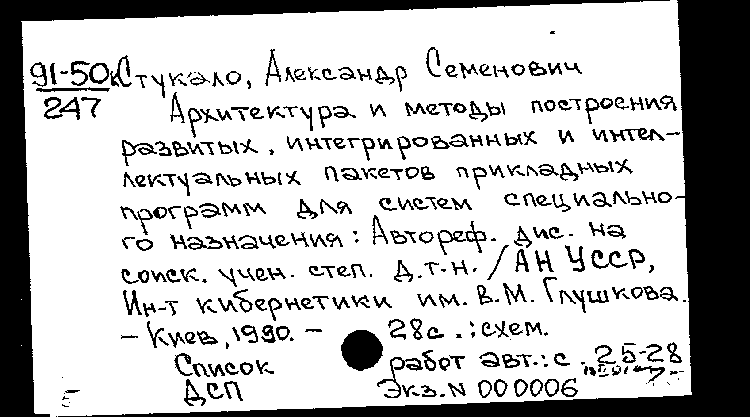 91-50к Стукало, Александр Семенович
247 Архитектура и методы построения
развитых, интегрированных и интел-
лектуальных пакетов прикладных
программ для систем специально-
го назначения: Автореф. дис. на
соиск. учен. степ. д.т.н. / АН УССР,
Ин-т кибернетики им. В.М. Глушкова.
- Киев, 1990. - 28с.:схем.
Список работ авт.: с. 25-28
ДСП Экз. N 000006